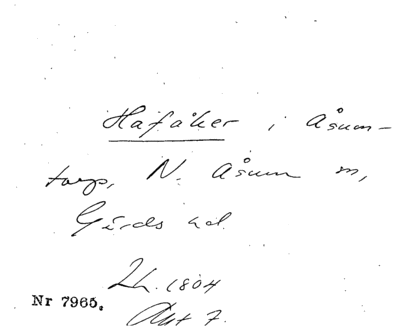 Hafåker i Åsum-
torp, N. Åsum m,
Gärds hd.
Lh. 1804
Akt 7.
Nr 7965.